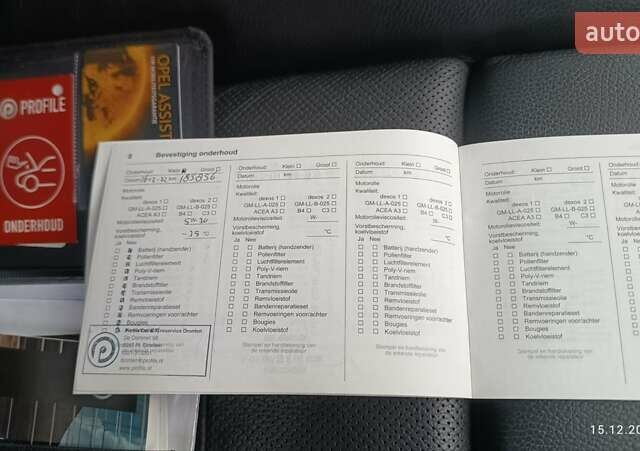 auto
PROFILE
ONDERHOUD
OPEL ASSIST
8 Bevestiging onderhoud
Onderhoud: Klein Groot
Datum km 185856
Motorolie
Kwaliteit: dexos 1 dexos 2
GM-LL-A-025 GM-LL-B-025
ACEA A3 B4 C3
Motorolieviscositeit: W-
Vorstbescherming, koelvloeistof -35 °C
Ja Nee
Batterij (handzender)
Pollenfilter
Luchtfilterelement
Poly-V-riem
Tandriem
Brandstoffilter
Transmissieolie
Remvloeistof
Bandenreparatieset
Remvoeringen voor/achter
Bougies
De Dommel 98
www.profile.nl
Onderhoud: Klein Groot
Datum km
Motorolie
Kwaliteit: dexos 1 dexos 2
GM-LL-A-025 GM-LL-B-025
ACEA A3 B4 C3
Motorolieviscositeit: W-
Vorstbescherming, koelvloeistof °C
Ja Nee
Batterij (handzender)
Pollenfilter
Luchtfilterelement
Poly-V-riem
Tandriem
Brandstoffilter
Transmissieolie
Remvloeistof
Bandenreparatieset
Remvoeringen voor/achter
Bougies
Koelvloeistof
Stempel en handtekening van
de erkende reparateur
Onderhoud: Klein Groot
Datum km
Motorolie
Kwaliteit: dexos 1 dexos 2
GM-LL-A-025 GM-LL-B-025
ACEA A3 B4 C3
Motorolieviscositeit: W-
Vorstbescherming, koelvloeistof °C
Ja Nee
Batterij (handzender)
Pollenfilter
Luchtfilterelement
Poly-V-riem
Tandriem
Brandstoffilter
Transmissieolie
Remvloeistof
Bandenreparatieset
Remvoeringen voor/achter
Bougies
Koelvloeistof
Stempel en handtekening van
de erkende reparateur
Onderhoud:
Datum
Motorolie
Kwaliteit:
GM-LL-A-025
ACEA A3
Motorolieviscositeit:
Vorstbescherming, koelvloeistof
Ja Nee
Batterij (handzender)
Pollenfilter
Luchtfilterelement
Poly-V-riem
Tandriem
Brandstoffilter
Transmissieolie
Remvloeistof
Bandenreparatieset
Remvoeringen voor/achter
Bougies
Koelvloeistof
Stempel en handtekening van
de erkende reparateur
15.12.20